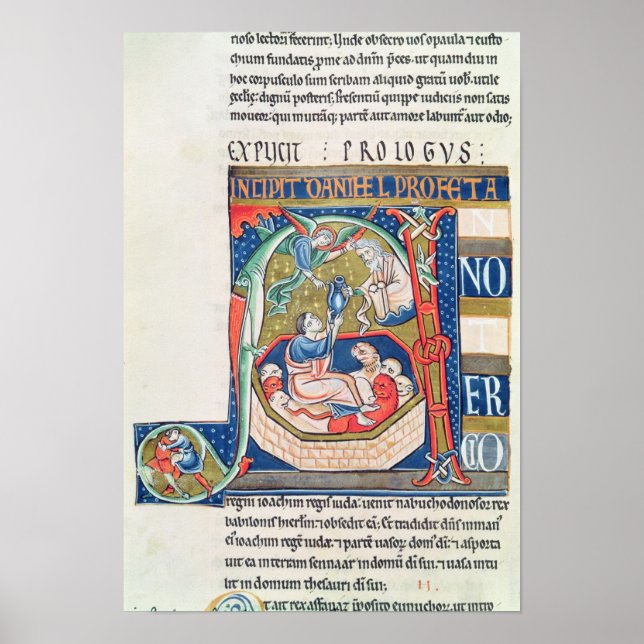 rioso lectori fecerint; Unde obsecro uos o paula ⁊ eusto
chium fundatis p me ad dnm pces. ut quam diu in
hoc corpusculo sum scribam aliquid gratū uob. utile
ecclie; dignū posteris; Presentiū quippe iudiciis non satis
moueor; qui in utrāq; partē aut amore labunt aut odio;
EXPLICIT : PROLOGVS :
INCIPIT DANIHEL PROFETA
A N
NO
T
ER
CIO
regni ioachim regis iuda; uenit nabuchodonosor rex
babilonis hierlm; ⁊ obsedit eā; Et tradidit dns in man
ei' ioachim regē iudæ; ⁊ partē uasorꝝ dom' di; ⁊ asporta
uit ea in terram sennaar in domū di sui. ⁊ uasa intu
lit in domum thesauri di sui;
II.
⁊ ait rex asfanaz pposito eunuchor. ut intro